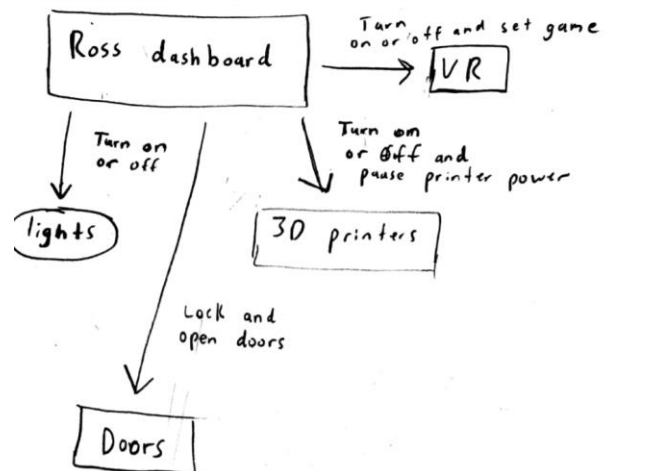 Ross dashboard
Turn
on or off and set game
VR
Turn on
or off
lights
Turn on
or off and
pause printer power
3D printers
Lock and
open doors
Doors